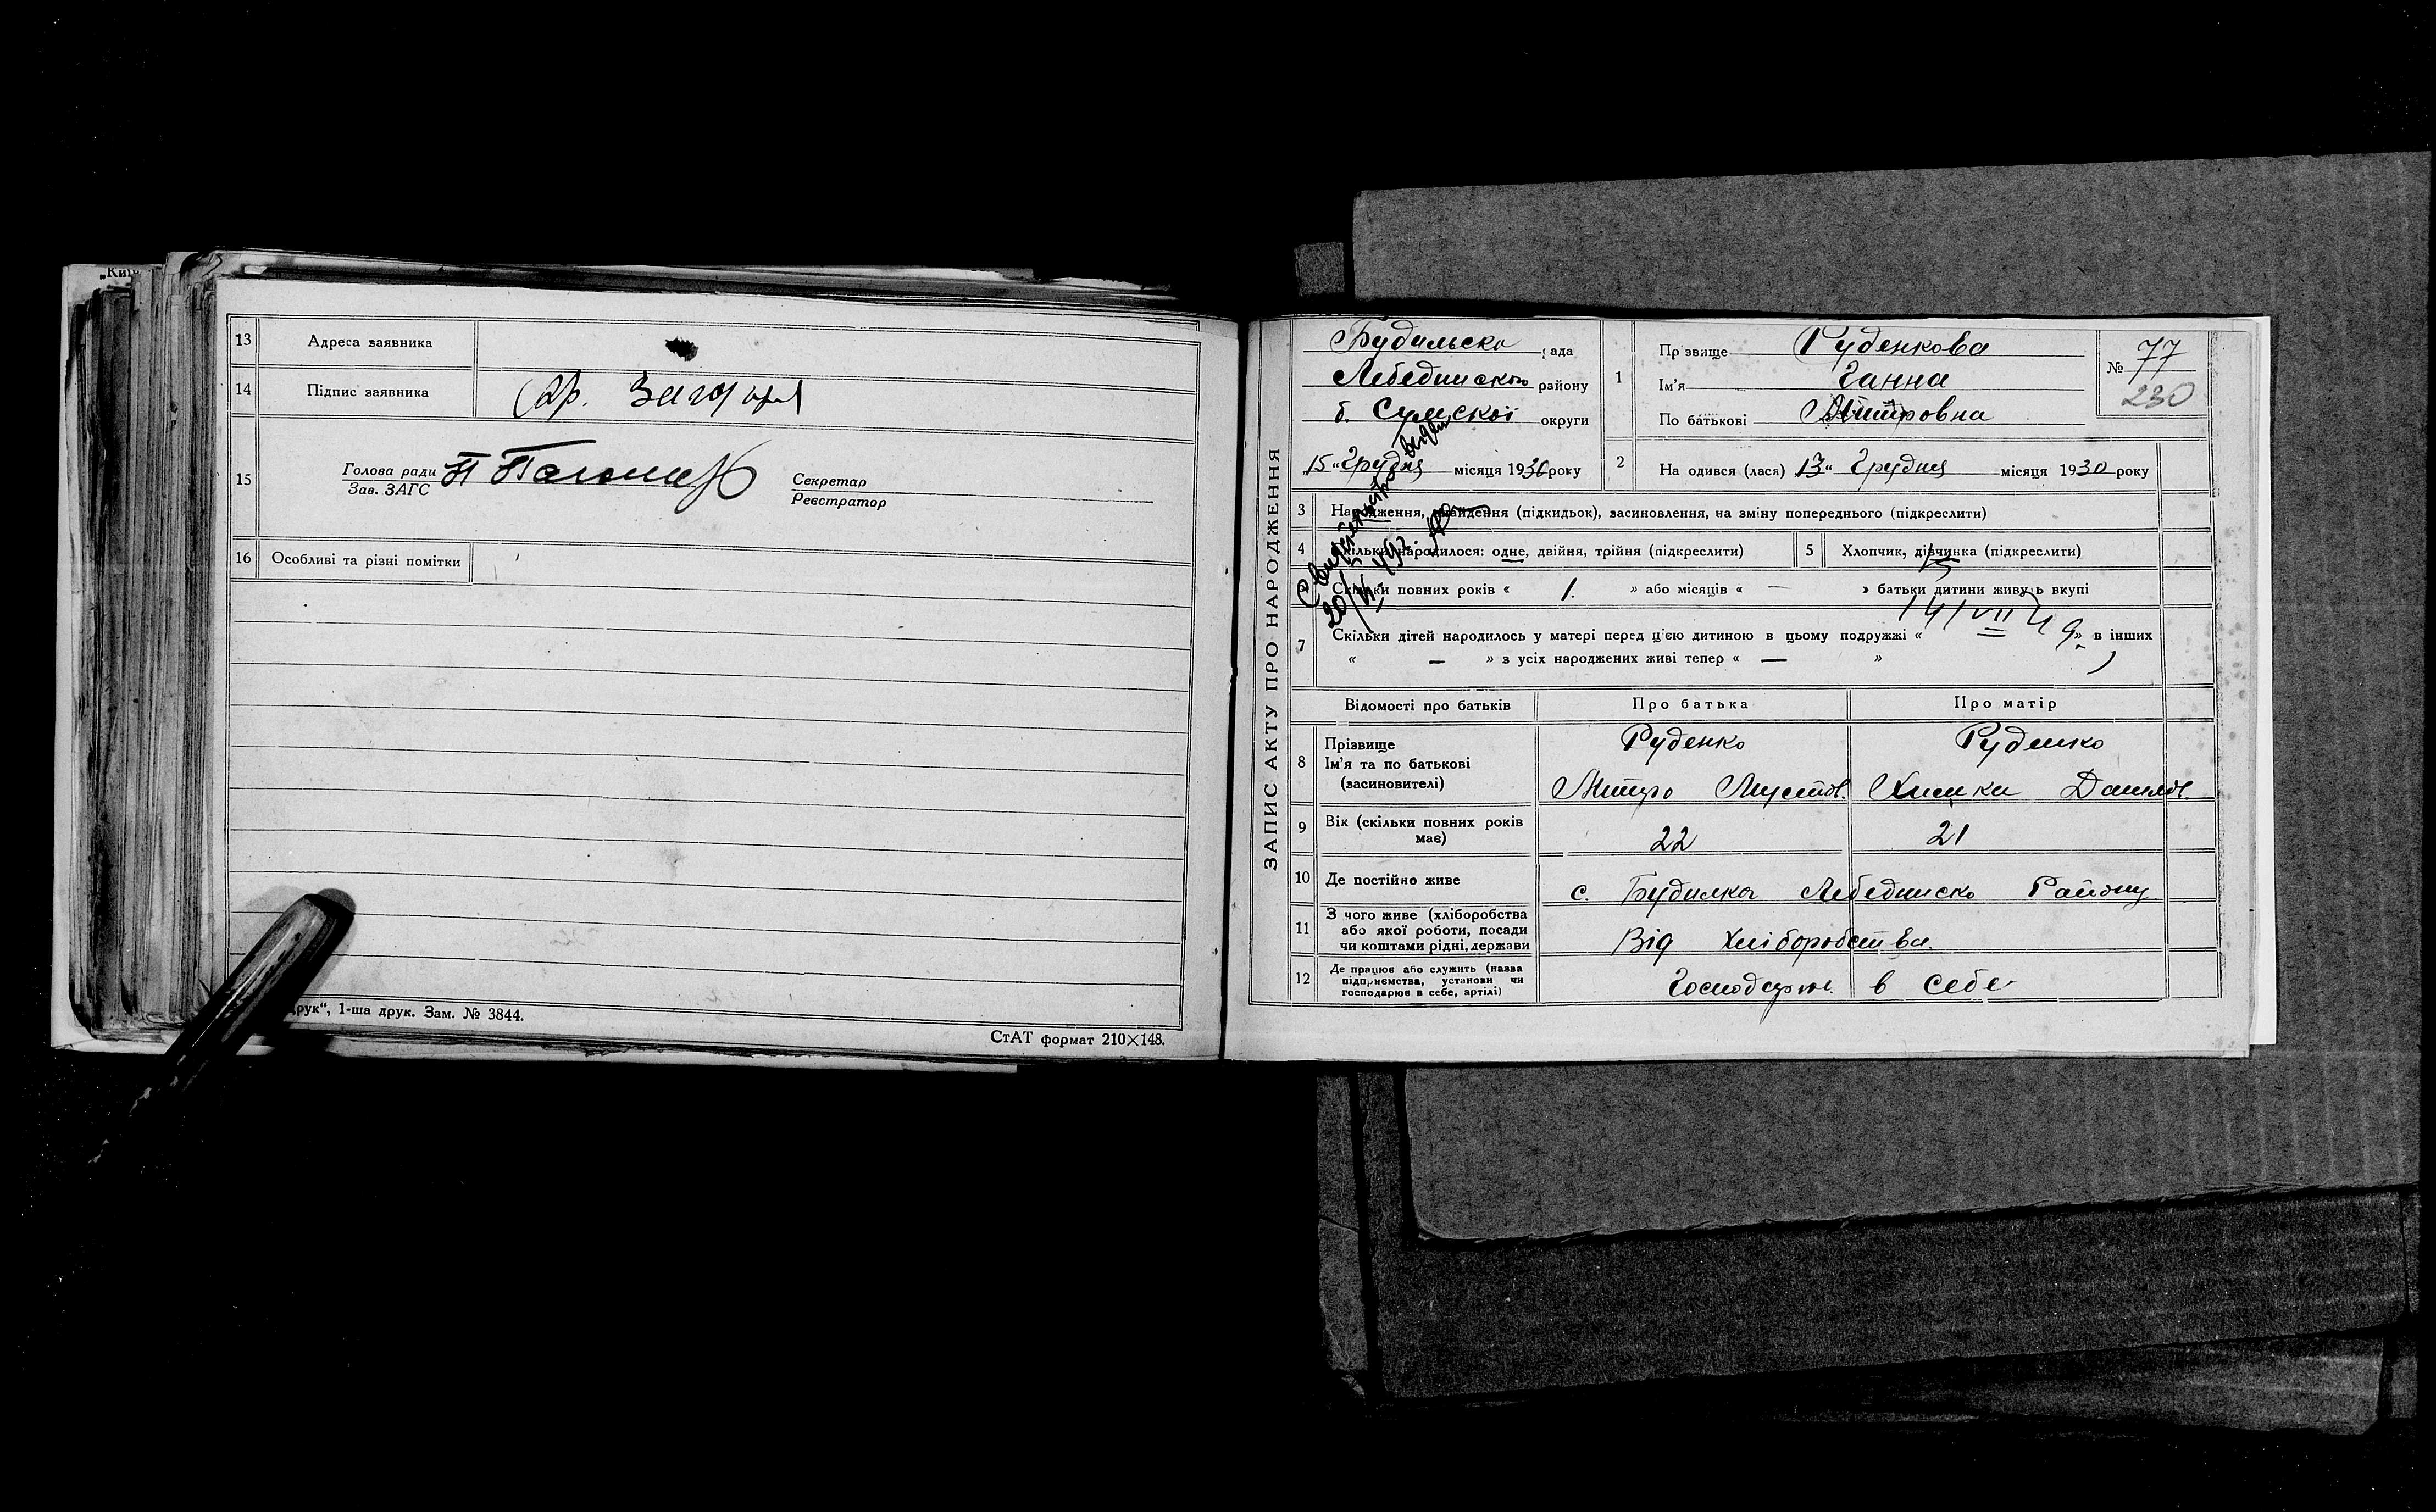 „Киї
13 Адреса заявника
14 Підпис заявника
15 Голова ради
Зав. ЗАГС
Секретар
Реєстратор
16 Особливі та різні помітки
друк“, 1-ша друк. Зам. № 3844.
СтАТ формат 210×148.
ЗАПИС АКТУ ПРО НАРОДЖЕННЯ
Будильска рада
Лебединского району
б. Сумскоі округи
„15“ Грудня місяця 1930 року
1 Прізвище Руденкова
Ім'я Ганна
По батькові Митровна
№ 77
230
2 На одився (лася) 13“ Грудня місяця 1930 року
Свидетельство выдан
20/VI 49г.
3 Народження, знайдення (підкидьок), засиновлення, на зміну попереднього (підкреслити)
4 Скільки народилося: одне, двійня, трійня (підкреслити)
5 Хлопчик, дівчинка (підкреслити)
Скільки повних років « 1. » або місяців « — » батьки дитини живуть вкупі
7 Скільки дітей народилось у матері перед цією дитиною в цьому подружжі « » в інших
« — » з усіх народжених живі тепер « — »
Відомості про батьків Про батька Про матір
8 Прізвище
Ім'я та по батькові
(засиновителі)
Руденко Руденко
Митро Химка Данилов.
9 Вік (скільки повних років має) 22 21
10 Де постійно живе с. Будилка Лебединско Району
11 З чого живе (хліборобства
або якої роботи, посади
чи коштами рідні, держави
Від Хліборобства.
12 Де працює або служить (назва
підприємства, установи чи
господарює в себе, артілі)
Господарює в себе